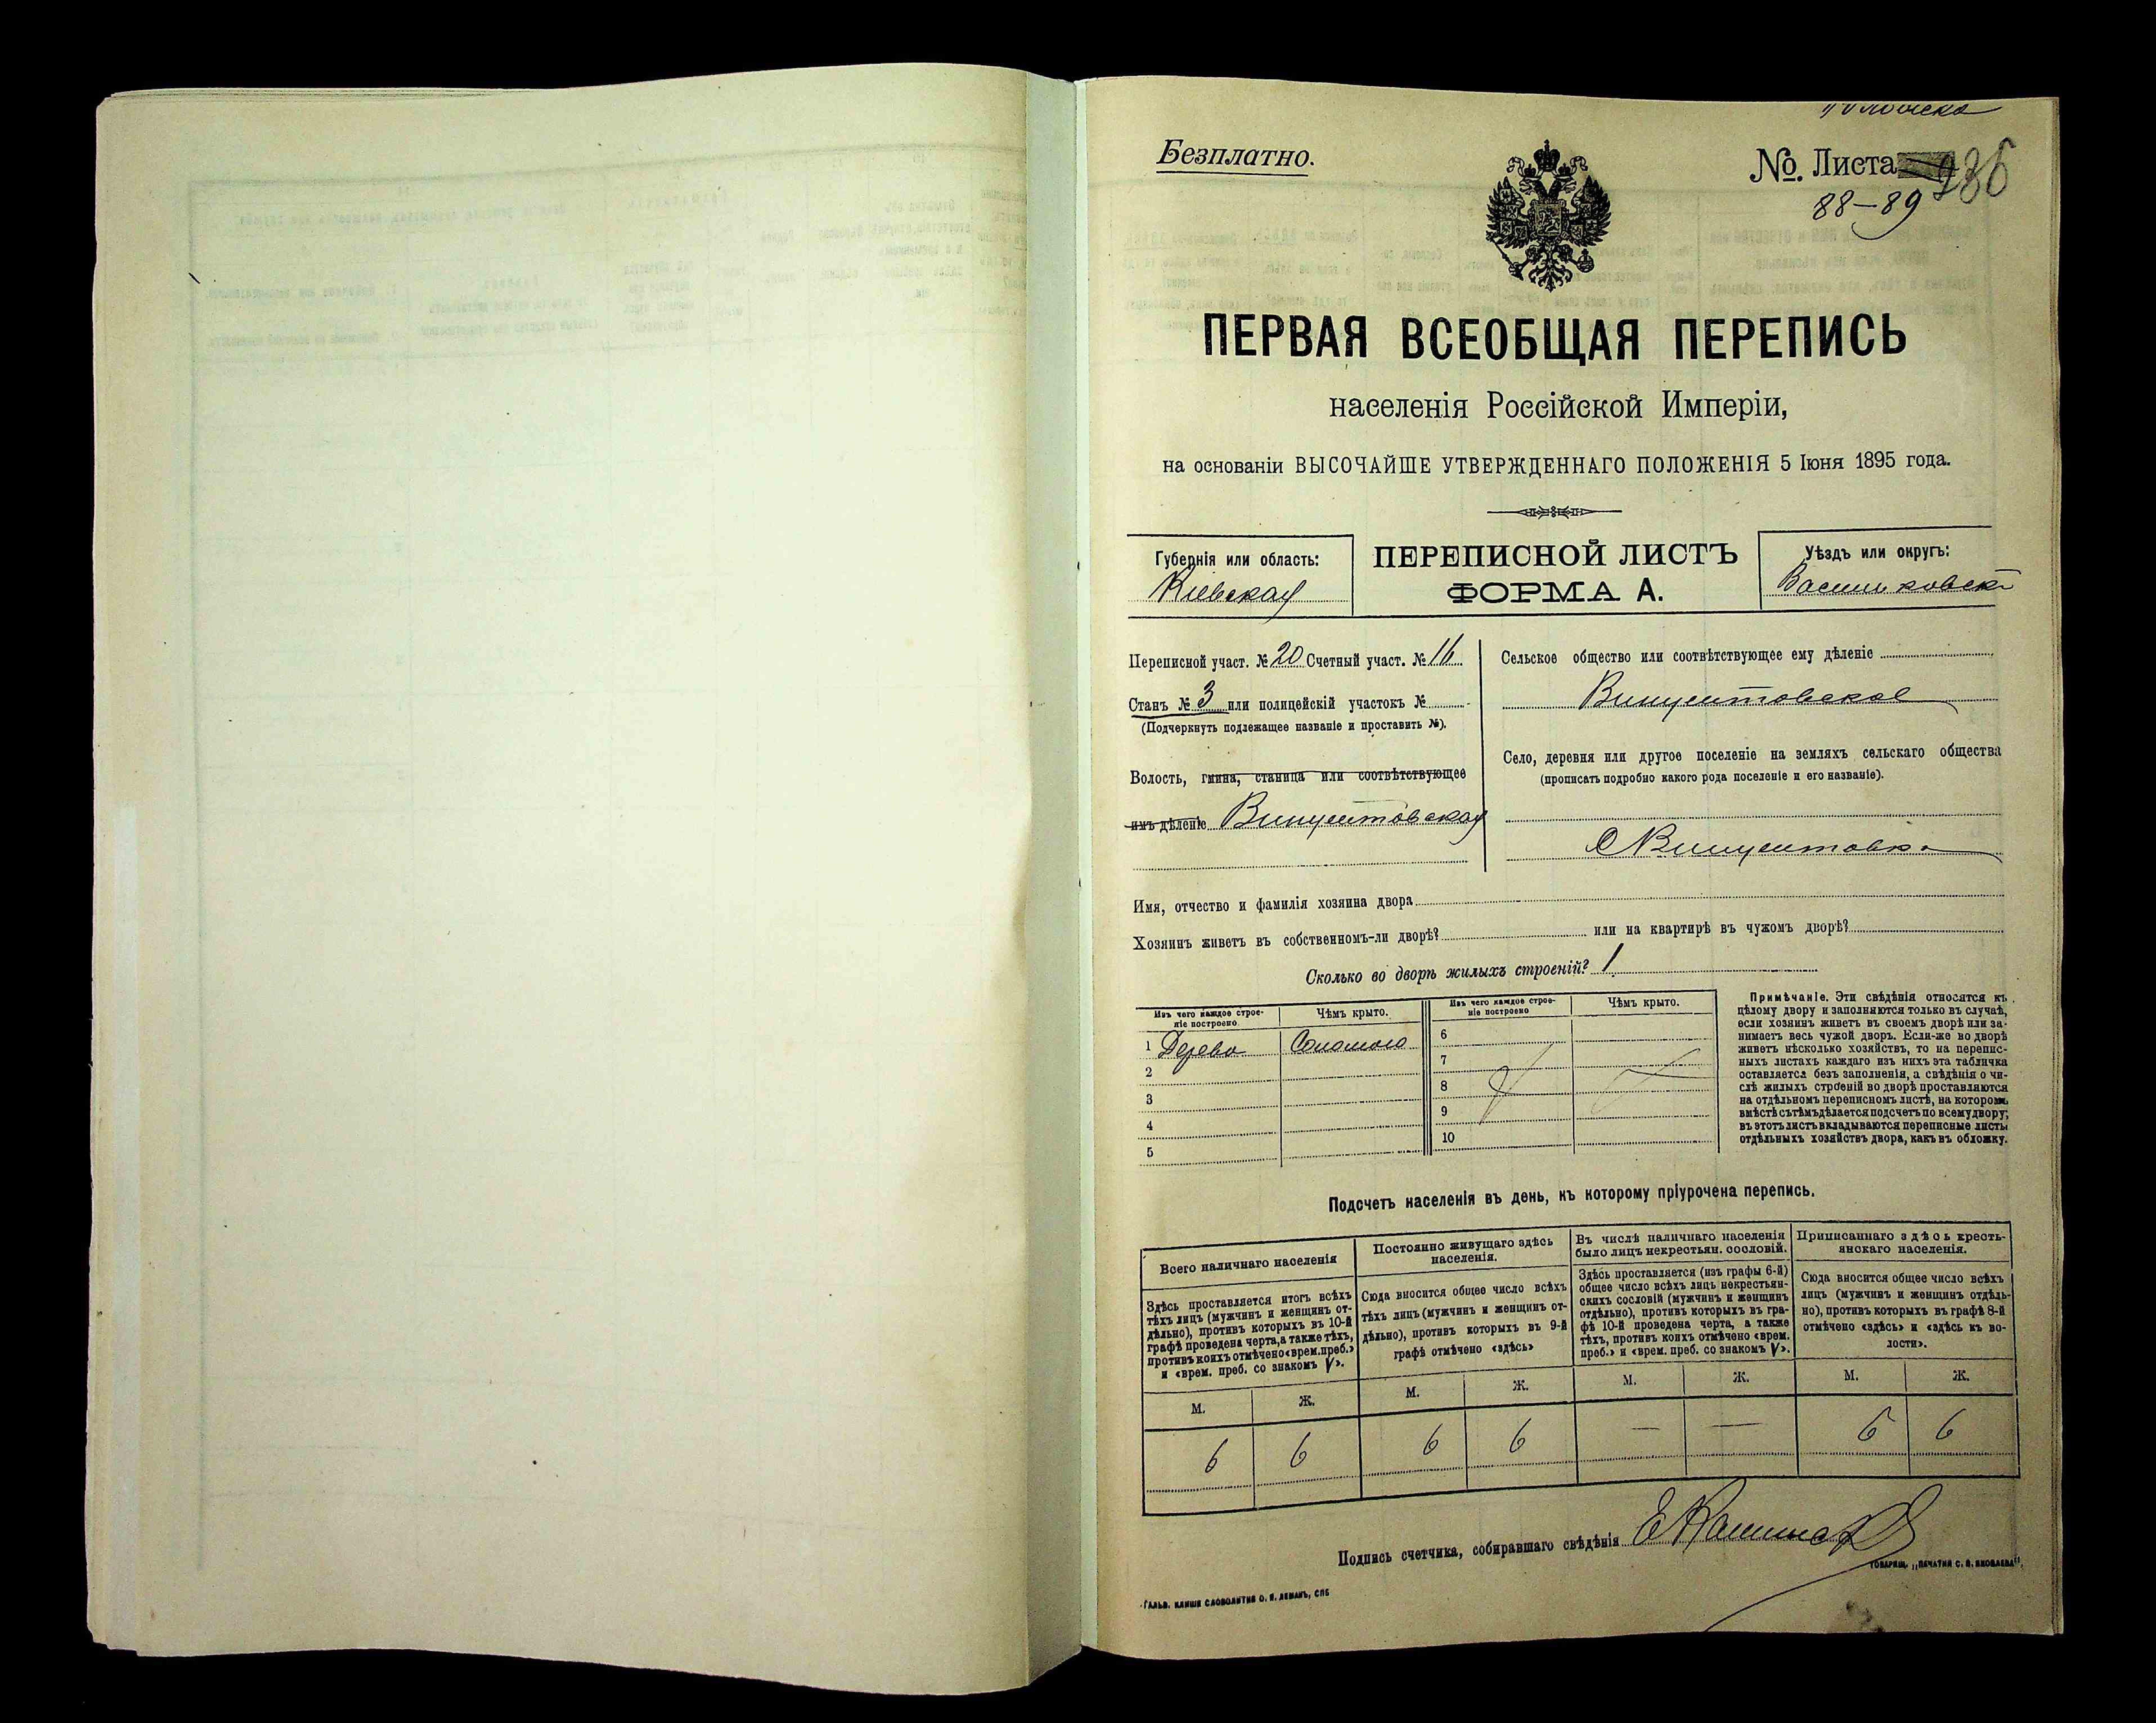 Безплатно.
№. Листа
88-89
ПЕРВАЯ ВСЕОБЩАЯ ПЕРЕПИСЬ
населенія Россійской Имперіи,
на основаніи ВЫСОЧАЙШЕ УТВЕРЖДЕННАГО ПОЛОЖЕНІЯ 5 Іюня 1895 года.
Губернія или область:
Кіевская
ПЕРЕПИСНОЙ ЛИСТЪ
ФОРМА А.
Уѣздъ или округъ:
Васильковскі
Переписной участ. № 20 Счетный участ. № 16
Станъ № 3 или полицейскій участокъ №
(Подчеркнуть подлежащее названіе и проставить №).
Волость, гмина, станица или соотвѣтствующее
имъ дѣленіе Винцентовская
Сельское общество или соотвѣтствующее ему дѣленіе
Винцентовское
Село, деревня или другое поселеніе на земляхъ сельскаго общества
(прописать подробно какого рода поселеніе и его названіе).
С Винцентовка
Имя, отчество и фамилія хозяина двора
Хозяинъ живетъ въ собственномъ-ли дворѣ? или на квартирѣ въ чужомъ дворѣ?
Сколько во дворѣ жилыхъ строеній? 1
Изъ чего каждое строе-
ніе построено
Чѣмъ крыто.
Изъ чего каждое строе-
ніе построено
Чѣмъ крыто.
1 Дерево Соломою
2
3
4
5
6
7
8
9
10
Примѣчаніе. Эти свѣдѣнія относятся къ
цѣлому двору и заполняются только въ случаѣ,
если хозяинъ живетъ въ своемъ дворѣ или за-
нимаетъ весь чужой дворъ. Если-же во дворѣ
живетъ нѣсколько хозяйствъ, то на перепис-
ныхъ листахъ каждаго изъ нихъ эта табличка
оставляется безъ заполненія, а свѣдѣнія о чи-
слѣ жилыхъ строеній во дворѣ проставляются
на отдѣльномъ переписномъ листѣ, на которомъ
вмѣстѣ съ тѣмъ дѣлается подсчетъ по всему двору;
въ этотъ листъ вкладываются переписные листы
отдѣльныхъ хозяйствъ двора, какъ въ обложку.
Подсчетъ населенія въ день, къ которому пріурочена перепись.
Всего наличнаго населенія
Здѣсь проставляется итогъ всѣхъ
тѣхъ лицъ (мужчинъ и женщинъ от-
дѣльно), противъ которыхъ въ 10-й
графѣ проведена черта, а также тѣхъ,
противъ коихъ отмѣчено «врем. преб.»
и «врем. преб. со знакомъ V».
Постоянно живущаго здѣсь
населенія.
Сюда вносится общее число всѣхъ
тѣхъ лицъ (мужчинъ и женщинъ от-
дѣльно), противъ которыхъ въ 9-й
графѣ отмѣчено «здѣсь»
Въ числѣ наличнаго населенія
было лицъ некрестьян. сословій.
Здѣсь проставляется (изъ графы 6-й)
общее число всѣхъ лицъ некрестьян-
скихъ сословій (мужчинъ и женщинъ
отдѣльно), противъ которыхъ въ гра-
фѣ 10-й проведена черта, а также
тѣхъ, противъ коихъ отмѣчено «врем.
преб.» и «врем. преб. со знакомъ V».
Приписаннаго здѣсь кресть-
янскаго населенія.
Сюда вносится общее число всѣхъ
лицъ (мужчинъ и женщинъ отдѣль-
но), противъ которыхъ въ графѣ 8-й
отмѣчено «здѣсь» и «здѣсь къ во-
лости».
М. Ж. М. Ж. М. Ж. М. Ж.
6 6 6 6 — — 6 6
Подпись счетчика, собиравшаго свѣдѣнія
ТОВАРИЩ. „ПЕЧАТНЯ С. П. ЯКОВЛЕВА".
ГАЛЬВ. КЛИШЕ СЛОВОЛИТНИ О. И. ЛЕМАНЪ, СПБ